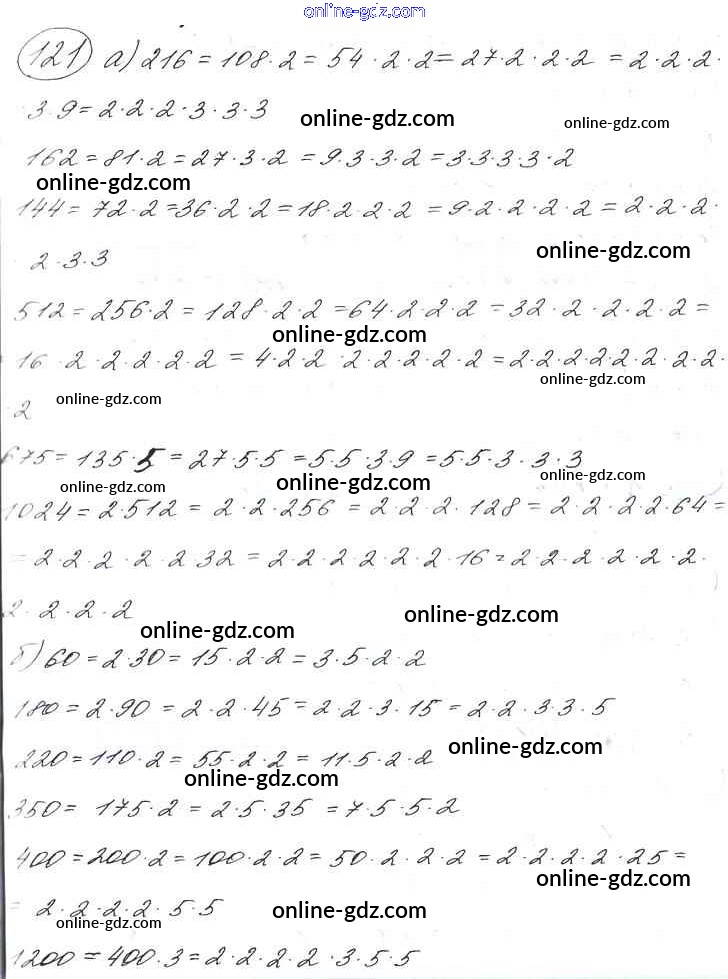 online-gdz.com
121 а) 216 = 108 · 2 = 54 · 2 · 2 = 27 · 2 · 2 · 2 = 2 · 2 · 2 ·
· 3 · 9 = 2 · 2 · 2 · 3 · 3 · 3
online-gdz.com online-gdz.com
162 = 81 · 2 = 27 · 3 · 2 = 9 · 3 · 3 · 2 = 3 · 3 · 3 · 3 · 2
online-gdz.com
144 = 72 · 2 = 36 · 2 · 2 = 18 · 2 · 2 · 2 = 9 · 2 · 2 · 2 · 2 = 2 · 2 · 2 ·
online-gdz.com
2 · 3 · 3
512 = 256 · 2 = 128 · 2 · 2 = 64 · 2 · 2 · 2 = 32 · 2 · 2 · 2 · 2 =
online-gdz.com
16 · 2 · 2 · 2 · 2 · 2 = 4 · 2 · 2 · 2 · 2 · 2 · 2 · 2 = 2 · 2 · 2 · 2 · 2 · 2 · 2 · 2 ·
online-gdz.com
online-gdz.com
· 2
675 = 135 · 5 = 27 · 5 · 5 = 5 · 5 · 3 · 9 = 5 · 5 · 3 · 3 · 3
online-gdz.com online-gdz.com online-gdz.com
1024 = 2 · 512 = 2 · 2 · 256 = 2 · 2 · 2 · 128 = 2 · 2 · 2 · 2 · 64 =
= 2 · 2 · 2 · 2 · 2 32 = 2 · 2 · 2 · 2 · 2 · 2 · 16 = 2 · 2 · 2 · 2 · 2 · 2 ·
2 · 2 · 2 · 2
online-gdz.com online-gdz.com
б) 60 = 2 · 30 = 15 · 2 · 2 = 3 · 5 · 2 · 2
180 = 2 · 90 = 2 · 2 · 45 = 2 · 2 · 3 · 15 = 2 · 2 · 3 · 3 · 5
220 = 110 · 2 = 55 · 2 · 2 = 11 · 5 · 2 · 2
online-gdz.com
online-gdz.com
350 = 175 · 2 = 2 · 5 · 35 = 7 · 5 · 5 · 2
400 = 200 · 2 = 100 · 2 · 2 = 50 · 2 · 2 · 2 = 2 · 2 · 2 · 2 · 25 =
online-gdz.com
= 2 · 2 · 2 · 2 · 5 · 5
online-gdz.com online-gdz.com
1200 = 400 · 3 = 2 · 2 · 2 · 2 · 3 · 5 · 5